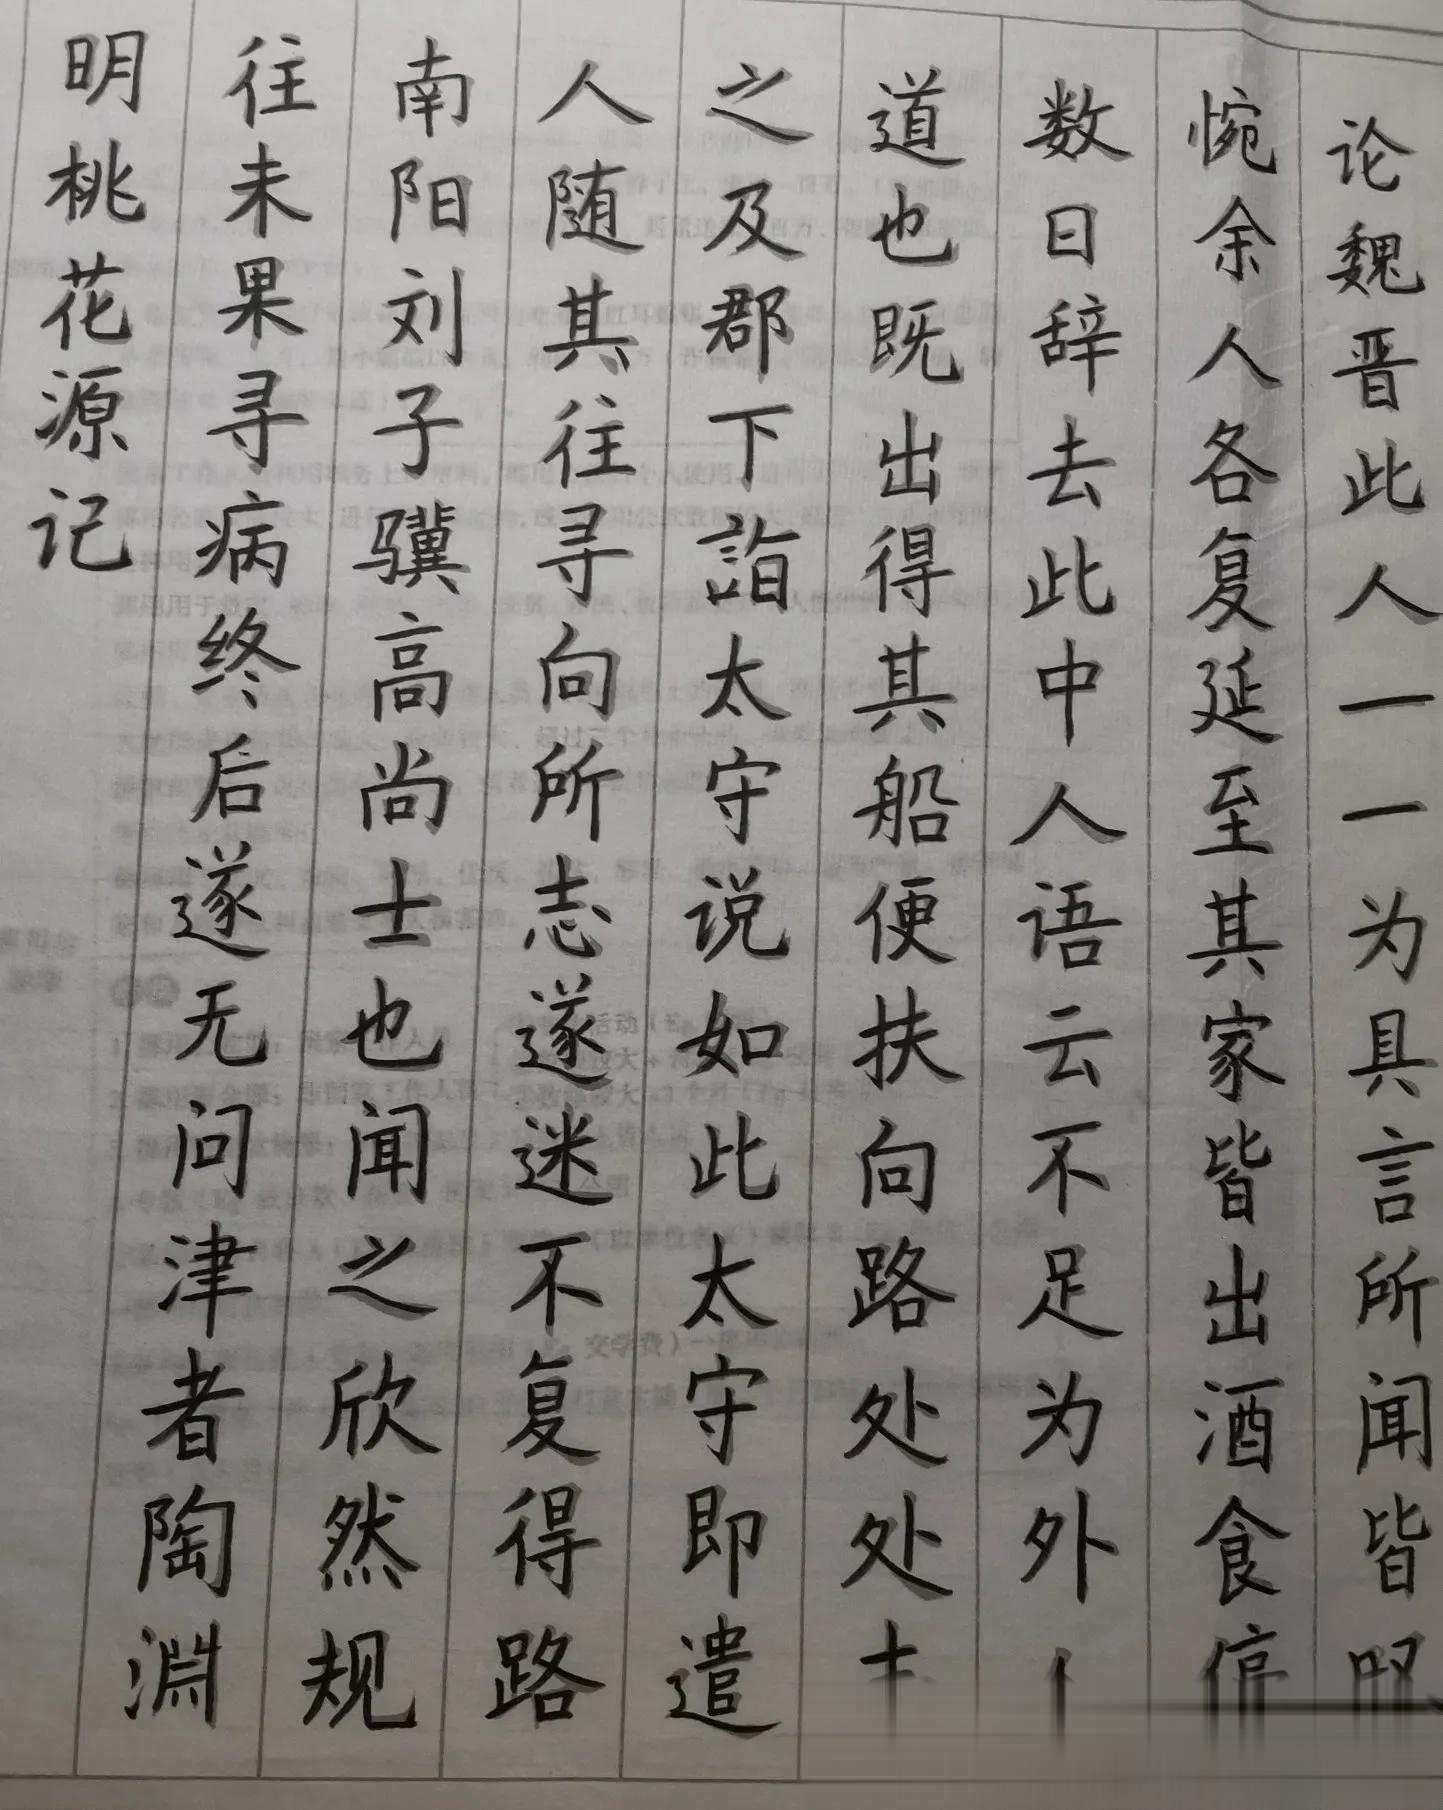 论魏晋此人一一为具言所闻皆叹
惋余人各复延至其家皆出酒食停
数日辞去此中人语云不足为外
道也既出得其船便扶向路处处
之及郡下诣太守说如此太守即遣
人随其往寻向所志遂迷不复得路
南阳刘子骥高尚士也闻之欣然规
往未果寻病终后遂无问津者陶渊
明桃花源记